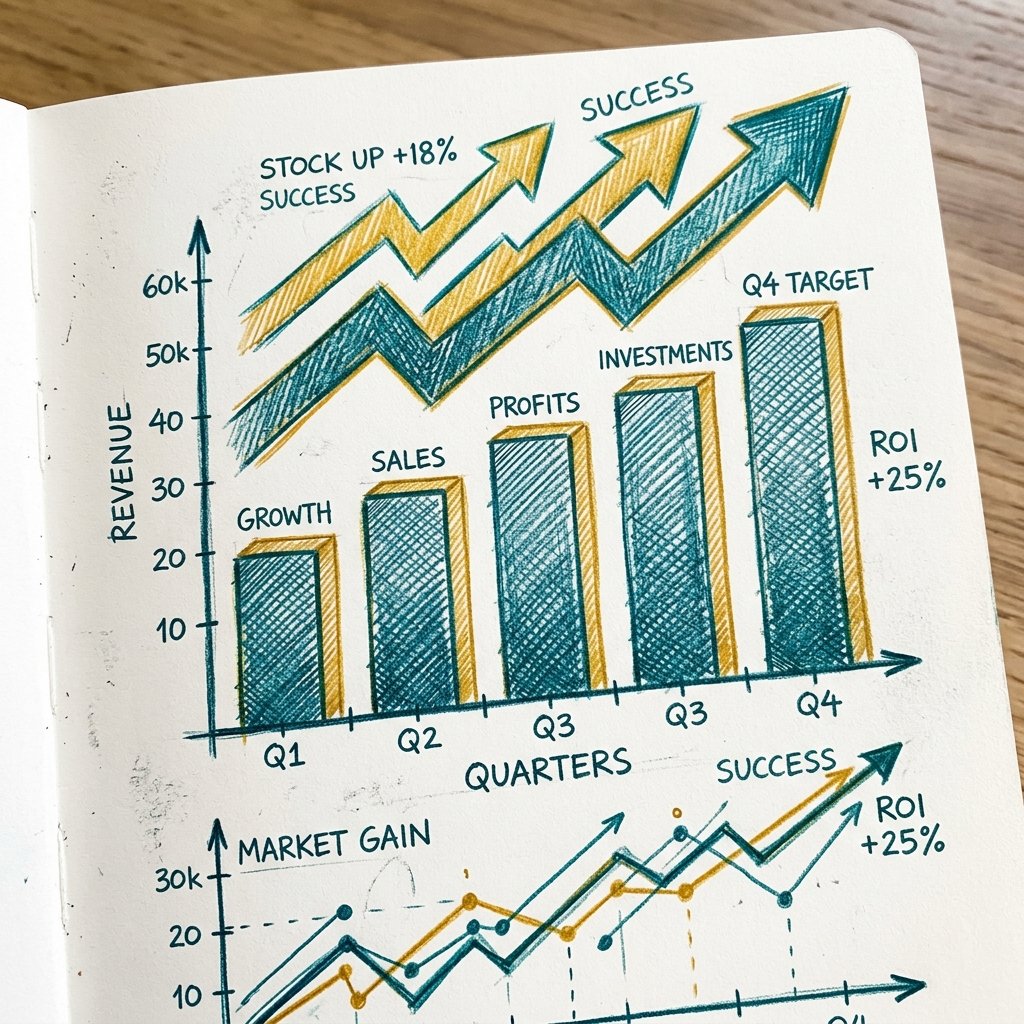 STOCK UP +18%
SUCCESS
SUCCESS
Q4 TARGET
60k
50k
40
30
20
10
REVENUE
GROWTH
SALES
PROFITS
INVESTMENTS
ROI
+25%
Q1
Q2
Q3
Q3
Q4
QUARTERS
MARKET GAIN
SUCCESS
ROI
+25%
30k
20
10